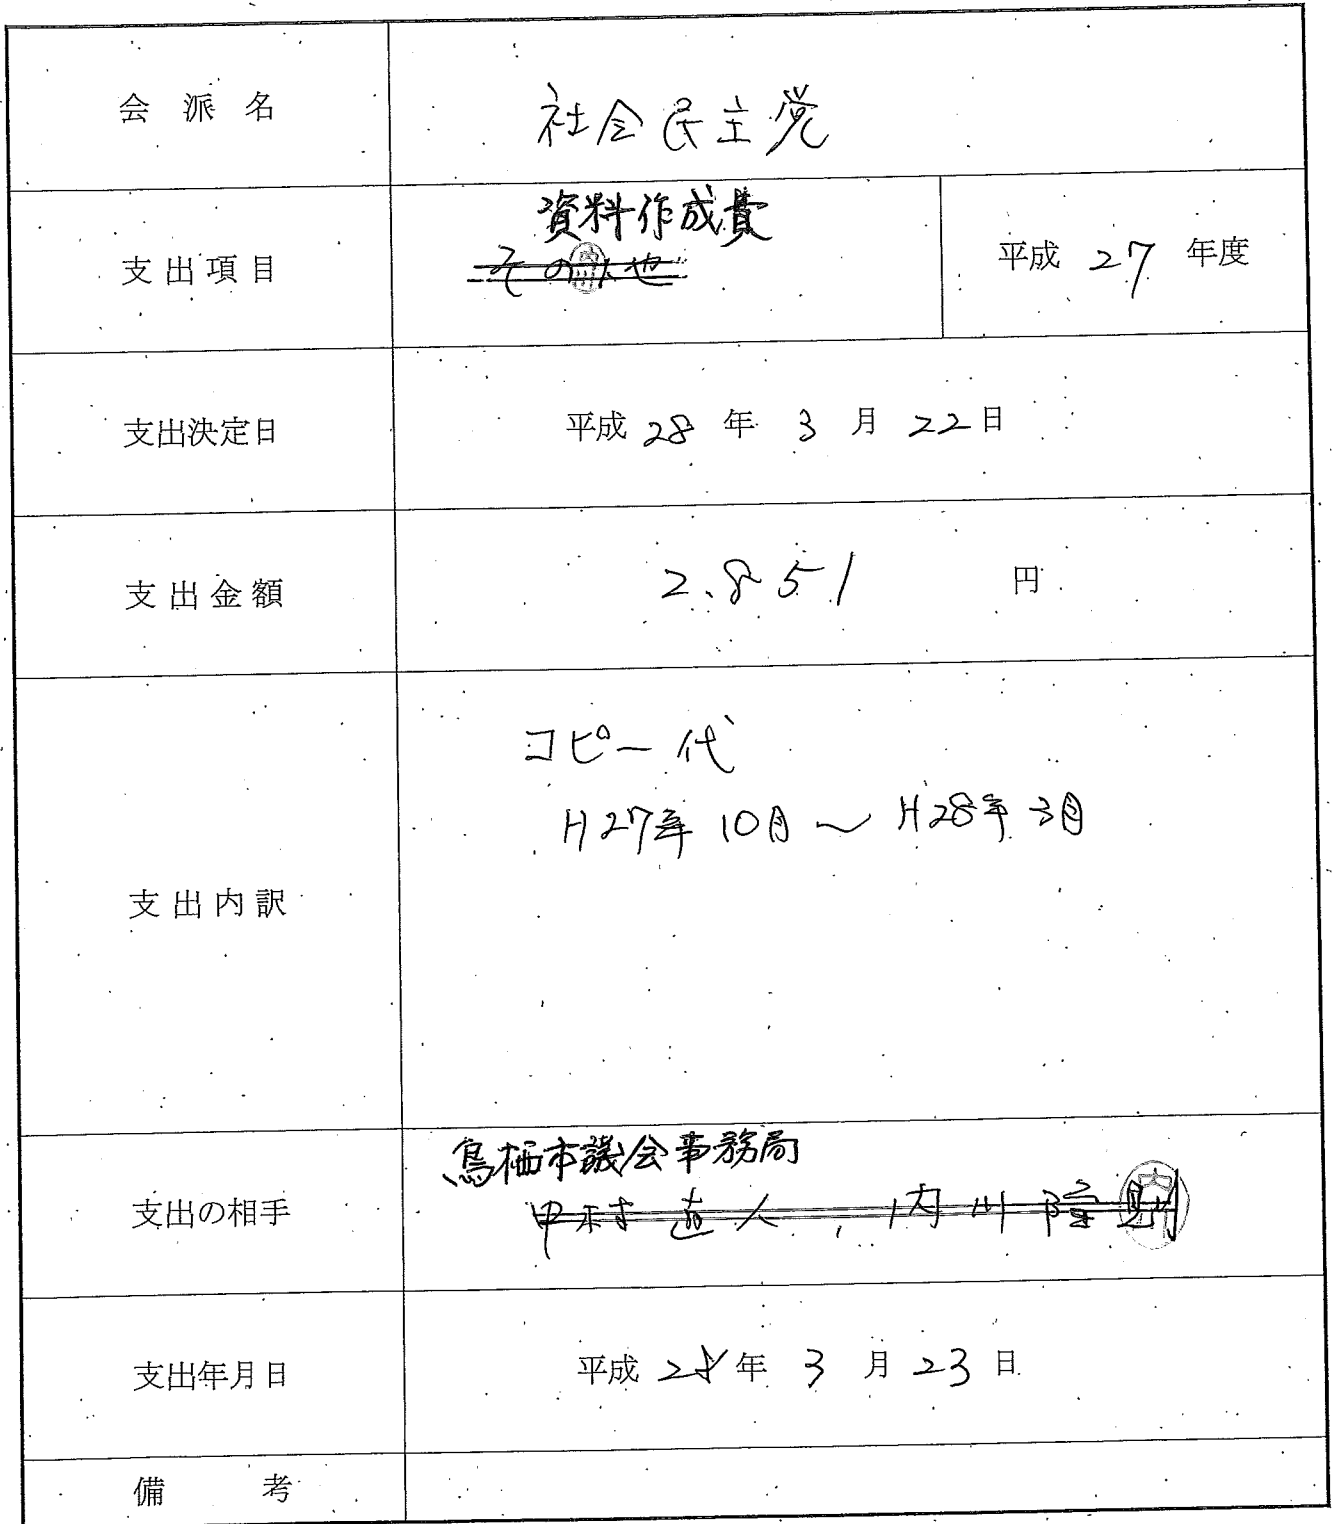 会派名 社会民主党
資料作成費
支出項目 その他 平成 27 年度
支出決定日 平成 28 年 3 月 22 日
支出金額 2,851 円
コピー代
H27年 10月 ~ H28年 3月
支出内訳
鳥栖市議会事務局
支出の相手 中村直人、内川隆則
支出年月日 平成 28 年 3 月 23 日
備考